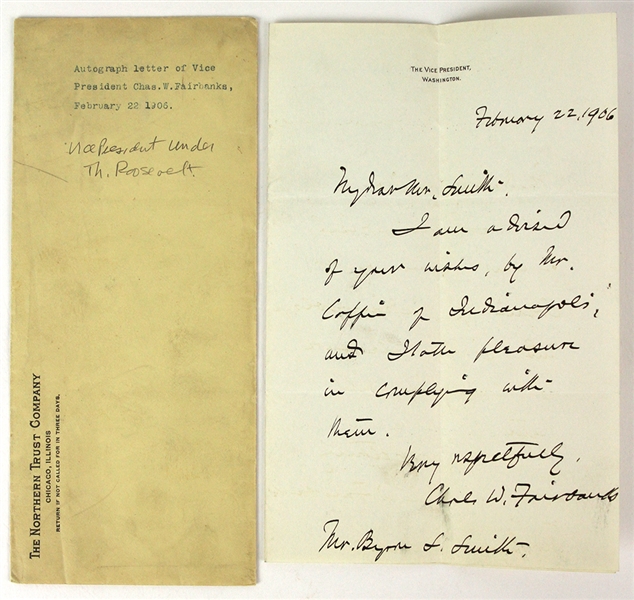 Autograph letter of Vice
President Chas.W.Fairbanks,
February 22 1906.
Vice President under
Th. Roosevelt.
THE NORTHERN TRUST COMPANY
CHICAGO, ILLINOIS
RETURN IF NOT CALLED FOR IN THREE DAYS.
THE VICE PRESIDENT,
WASHINGTON.
February 22, 1906
My dear Mr. Smith-
I am advised
of your wishes, by Mr.
Coffin of Indianapolis,
and I take pleasure
in complying with
them.
Very respectfully,
Charles W. Fairbanks
Mr. Byron L. Smith.